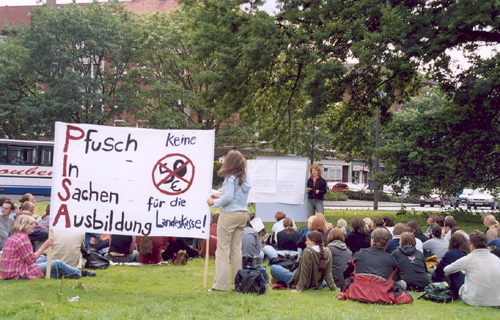 Pfusch
In
Sachen
Ausbildung
Keine
€
für die
Landeskasse!